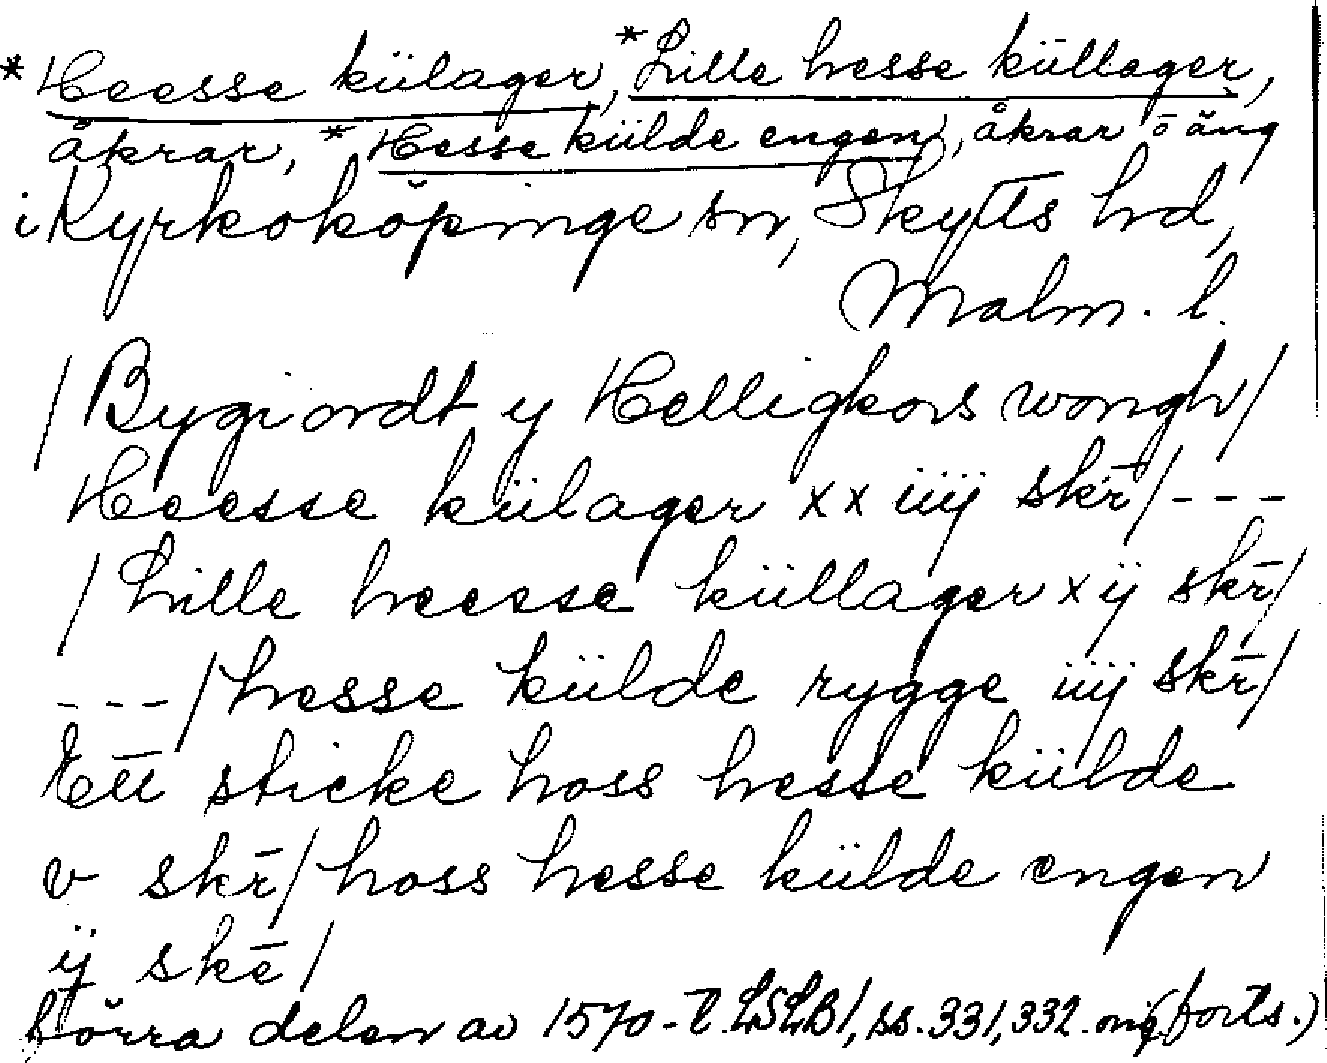 * Heesse külager, * Lille hesse küllager,
åkrar, * Hesse külde engen, åkrar o äng
i Kyrkoköpinge sn, Skytts hd,
Malm. l.
/ Bygiordt y Helligkors wongh /
Heesse külager xx iiij skr̄ / - - -
/ Lille heesse küllager x ij skr̄ /
- - - / hesse külde rygge iiij skr̄ /
Ett sticke hoss hesse külde
v skr̄ / hoss hesse külde engen
ij skē /
förra delen av 1570-t. LSLB 1, ss. 331, 332. orig. (forts.)